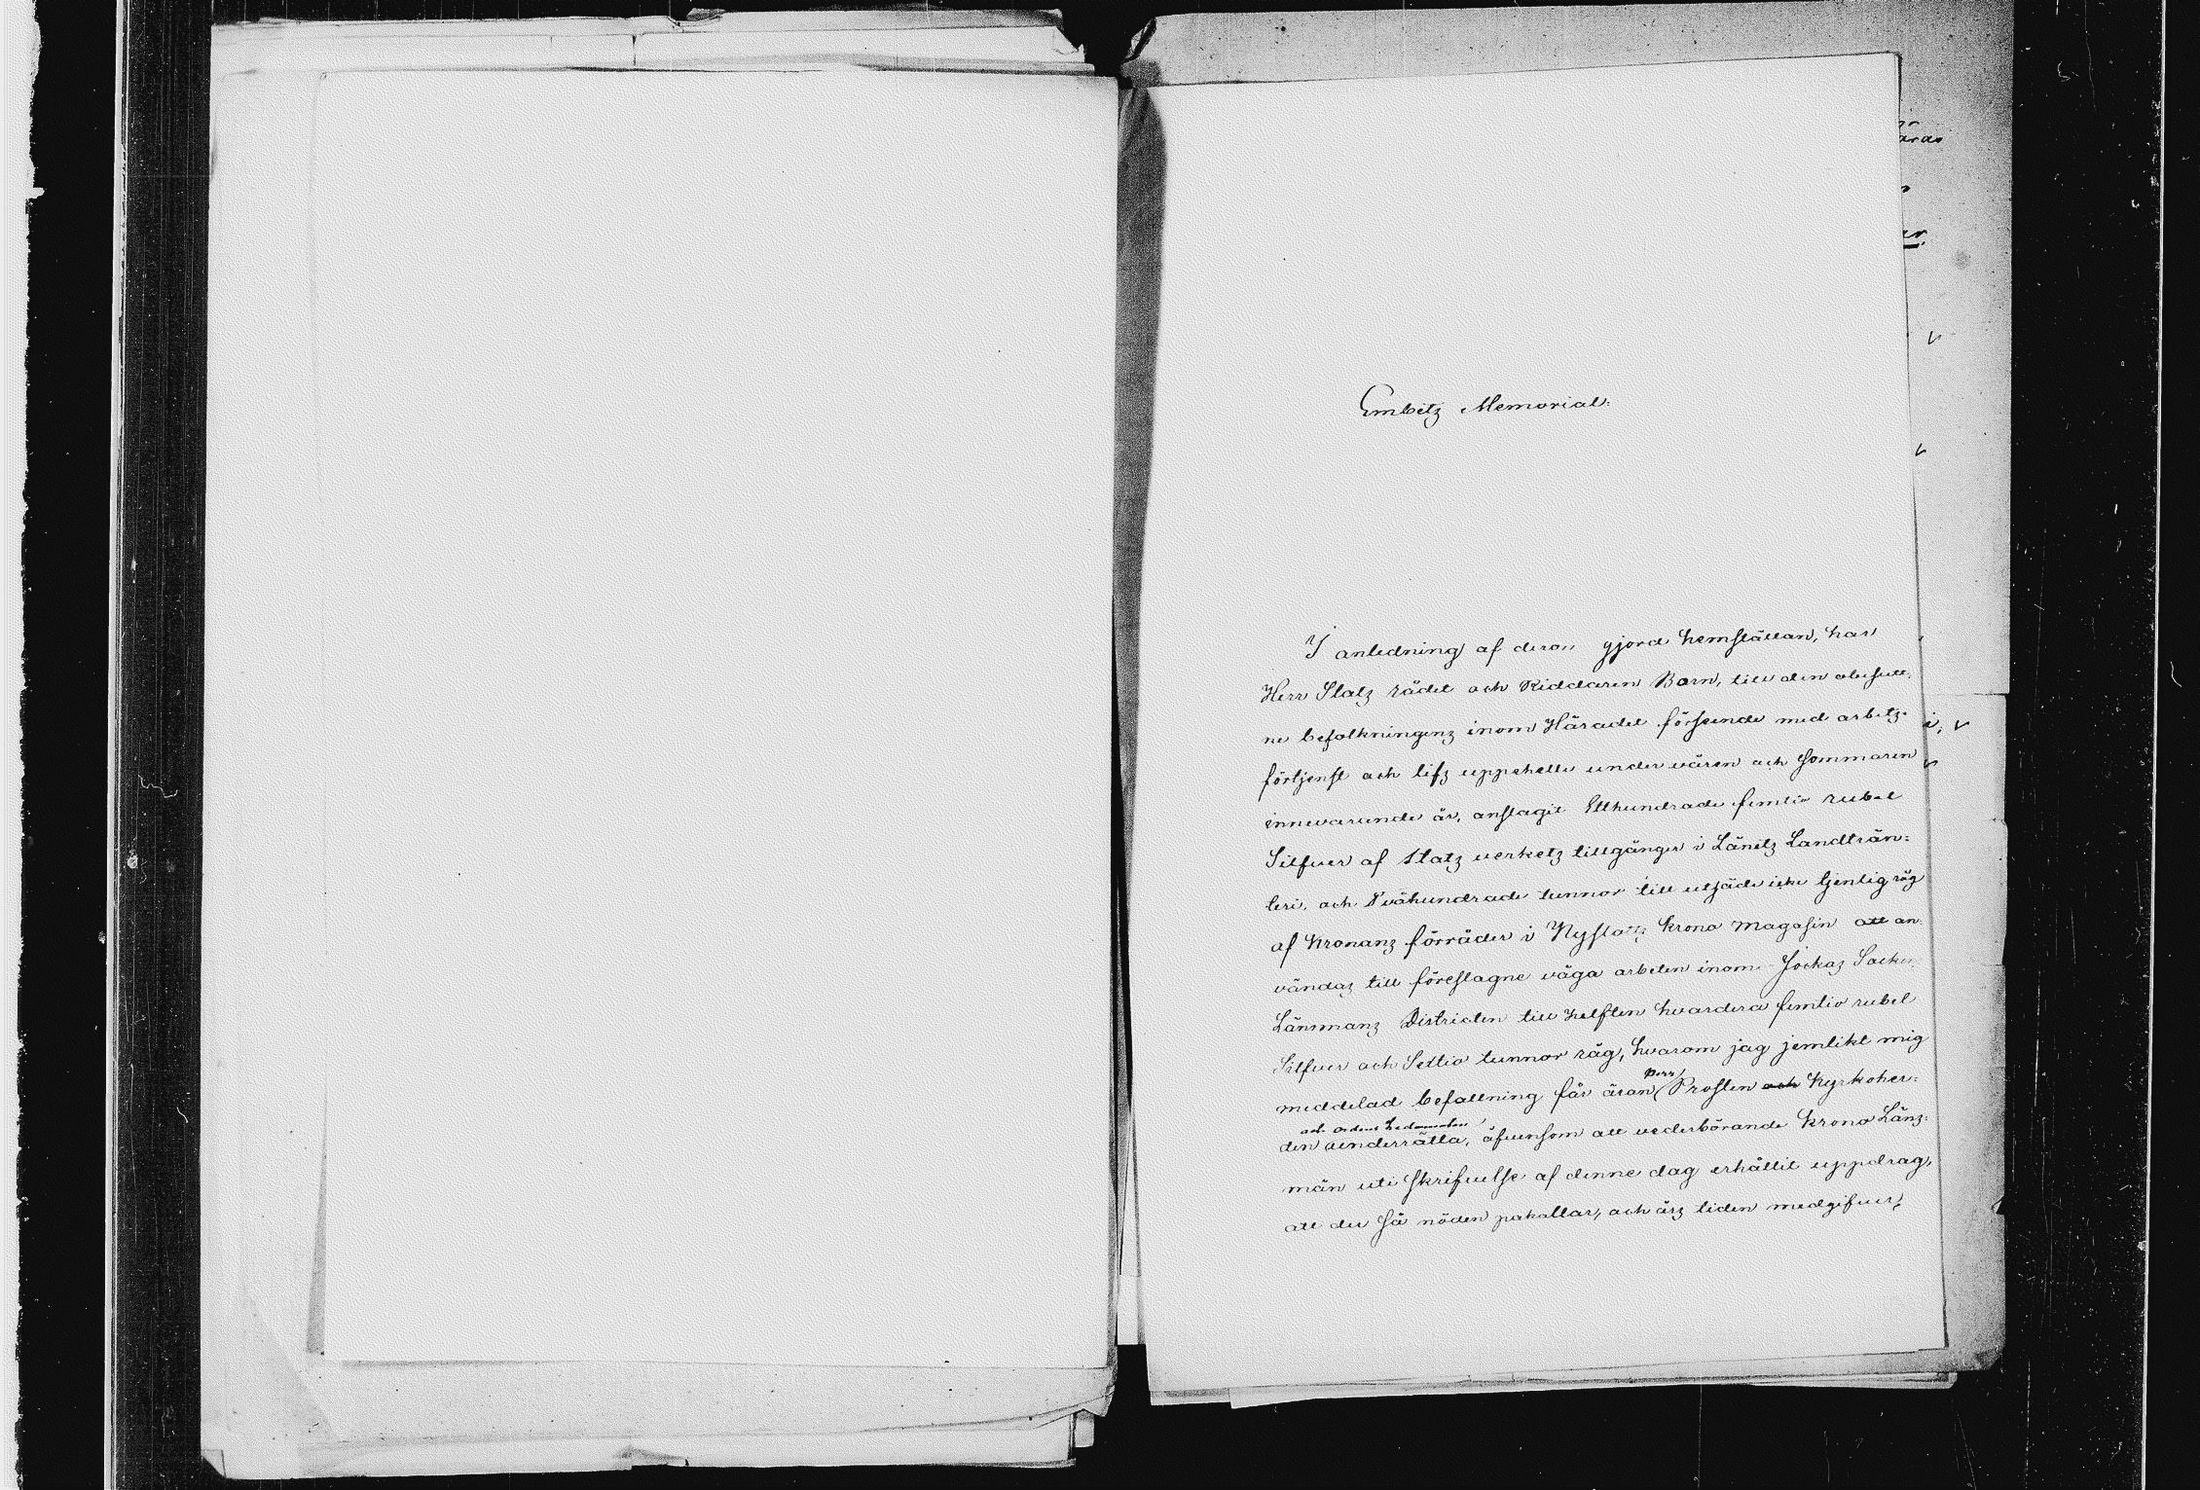 Embets Memorial.
I anledning af derom gjord hemställan, har
Herr Stats rådet och Riddaren Born, till den obesutt-
ne befolkningens inom Häradet förseende med arbets-
förtjenst och lifs uppehelle under våren och Sommaren
innevarande år, anslagit Etthundrade femtio rubel
Silfver af Stats verkets tillgånger i Länets Landträn-
teri, och Tvåhundrade tunnor till utsäde icke tjenlig råg
af Kronans förråder i Nyslotts Krono Magasin att an-
vändas till föreslagne väga arbeten inom Jockas Socken
Länsmans Districten till helften hvardera femtio rubel
Silfver och Settio tunnor råg, hvarom jag jemlikt mig
meddelad befallning får äran Herr Prosten och Kyrkoher-
och Ordens Ledamoten
den underrätta, äfvensom att vederbörande Krono Läns-
män uti skrifvelse af denne dag erhållit uppdrag,
att der så nöden påkallar, och års tiden medgifver,